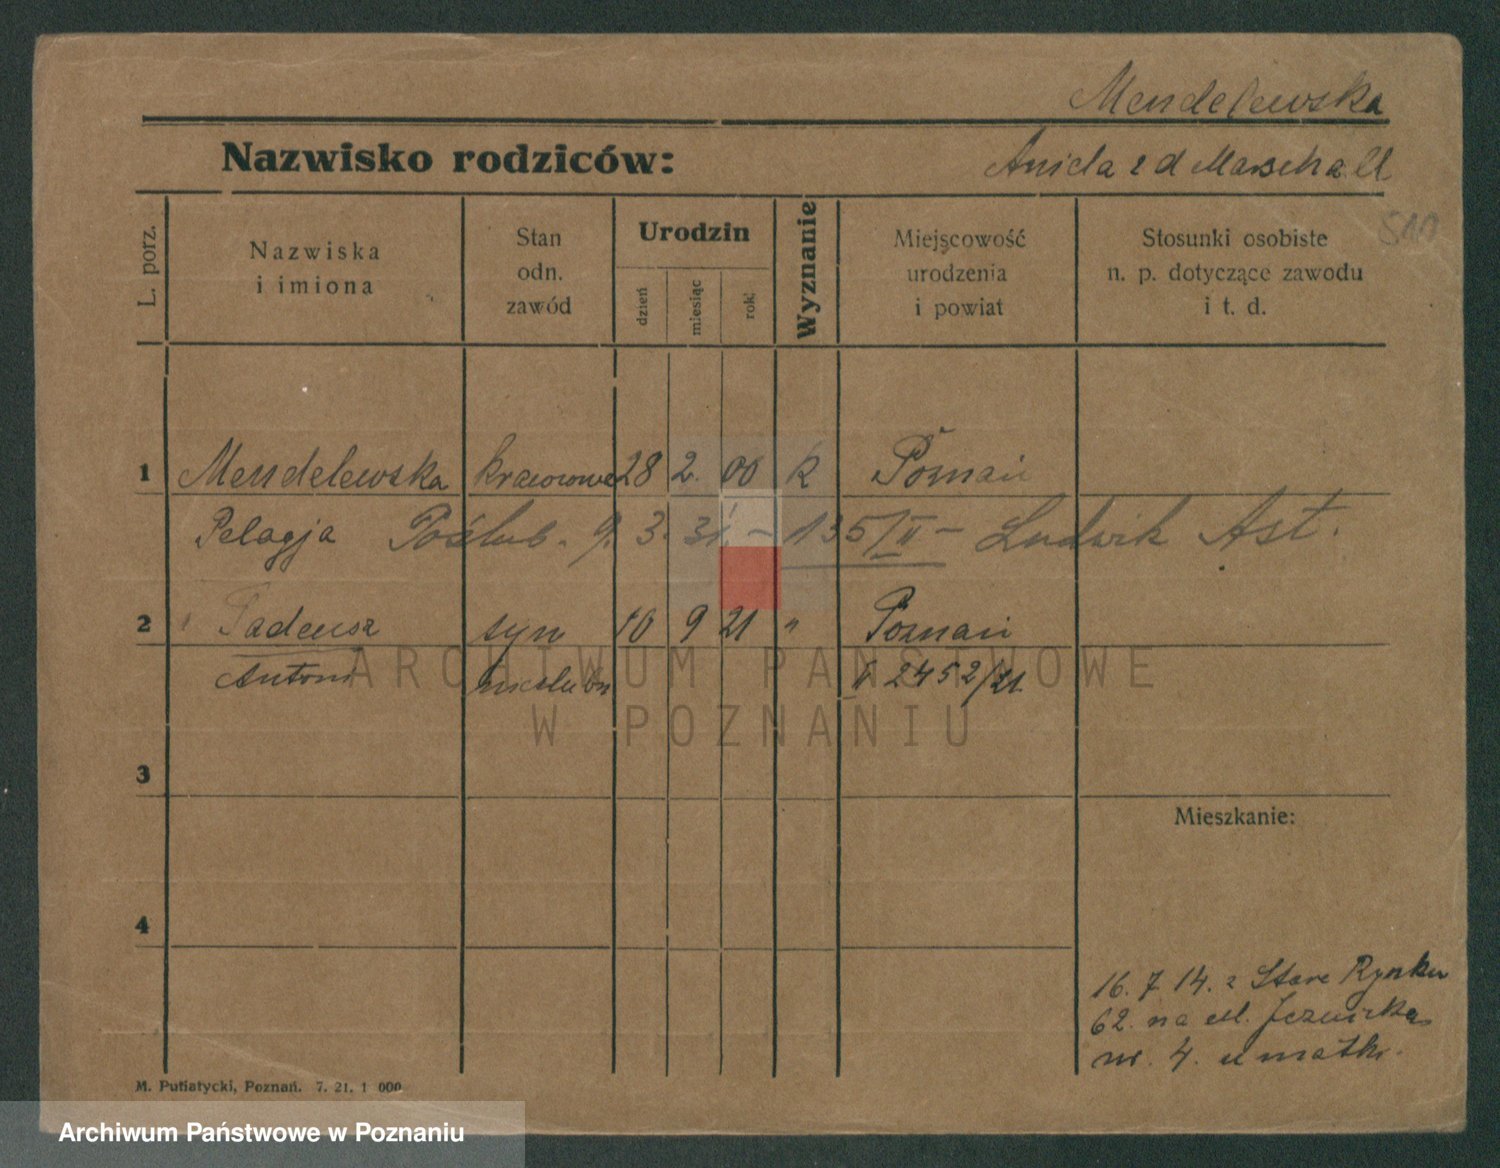 Mendelewska
Nazwisko rodziców:
Aniela z d Marschall
L. porz.
Nazwiska
i imiona
Stan
odn.
zawód
Urodzin
dzień
miesiąc
rok
Wyznanie
Miejscowość
urodzenia
i powiat
Stosunki osobiste
n. p. dotyczące zawodu
i t. d.
1 Mendelewska krawcowa 28 2. 00 k Poznań
Pelagja Poślub. 9. 3. 31. – 135/II – Ludwik Ast.
2 " Tadeusz syn 10 9 21 " Poznań
Antoni nieślubn 2452/21
ARCHIWUM PAŃSTWOWE
W POZNANIU
3
Mieszkanie:
4
16. 7. 14. z Stare Rynku
62. na ul. Jezuicka
nr. 4. u matki.
M. Putiatycki, Poznań. 7. 21. 1 000
Archiwum Państwowe w Poznaniu